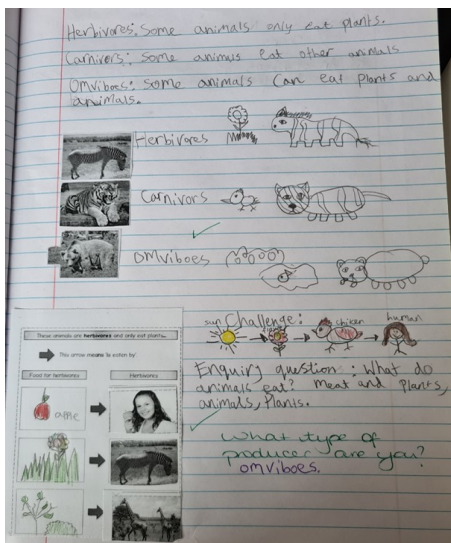 Herbivores: Some animals only eat plants.
Carnivors: Some animus eat other animals
Omviboes: some animals can eat plants and
animals.
Herbivores
Carnivors
omviboes
Challenge:
sun
plant
chiken
human
Enquiry question: What do
animals eat? meat and plants,
animals, Plants.
What type of
producer are you?
omviboes.
These animals are herbivores and only eat plants.
This arrow means 'is eaten by'
Food for herbivores
Herbivores
apple